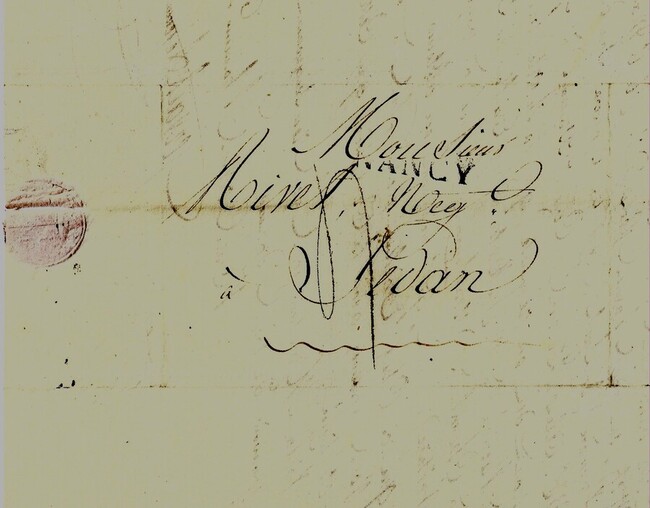 Monsieur
NANCY
Nivet, Neg.t
à Sedan